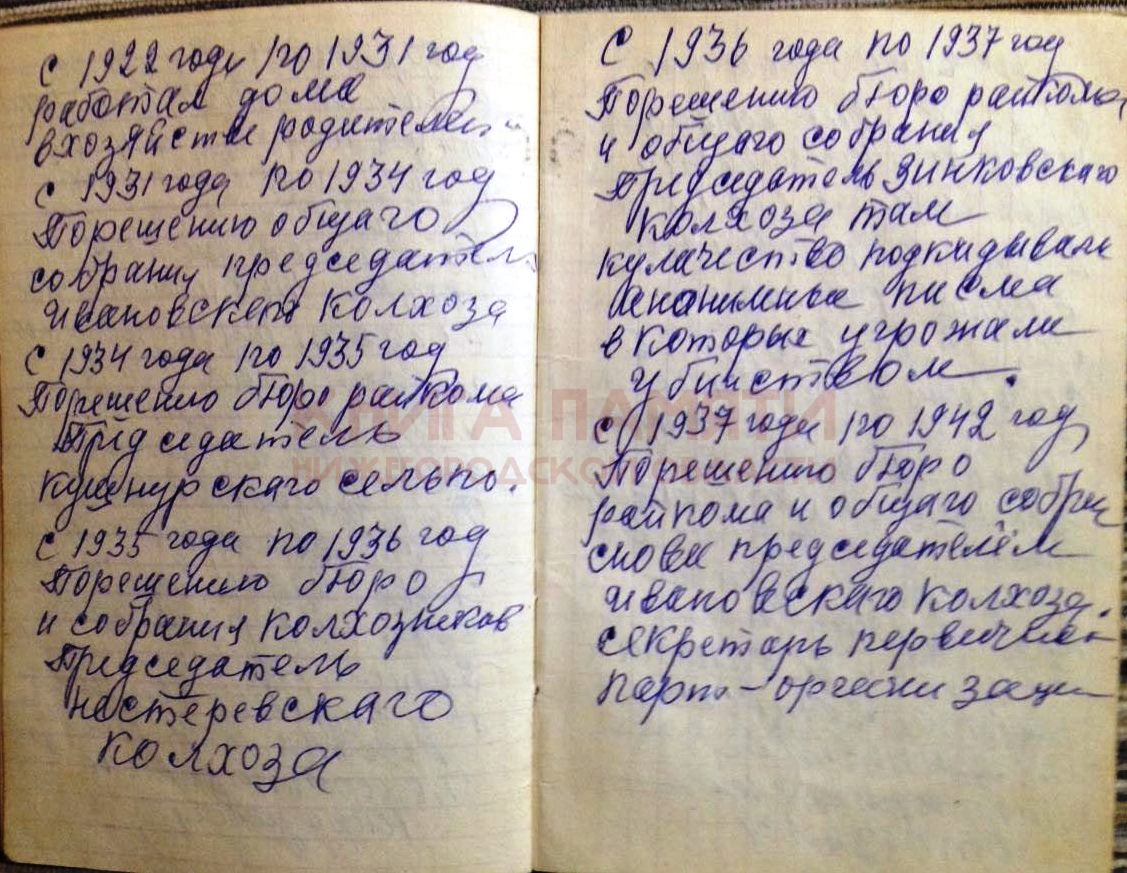 с 1922 года по 1931 год
работал дома
в хозяйстве родителей
с 1931 года по 1934 год
Порешению общаго
собрания председатель
ивановскаго колхоза
с 1934 года по 1935 год
Порешению бюро райкома
Председатель
кушнурскаго сельпо.
с 1935 года по 1936 год
Порешению бюро
и собрания колхозников
Председатель
нестеревскаго
колхоза
С 1936 года по 1937 год
Порешению бюро райкома
и общаго собрания
Председатель Зинковскаго
колхоза там
кулачество подкидывали
анонимные писма
в которых угрожали
убийством.
с 1937 года по 1942 год
Порешению бюро
райкома и общаго собран
снова председателем
ивановскаго колхоза.
секретарь первичной
парт-организации
КНИГА ПАМЯТИ
НИЖЕГОРОДСКОЙ ОБЛАСТИ